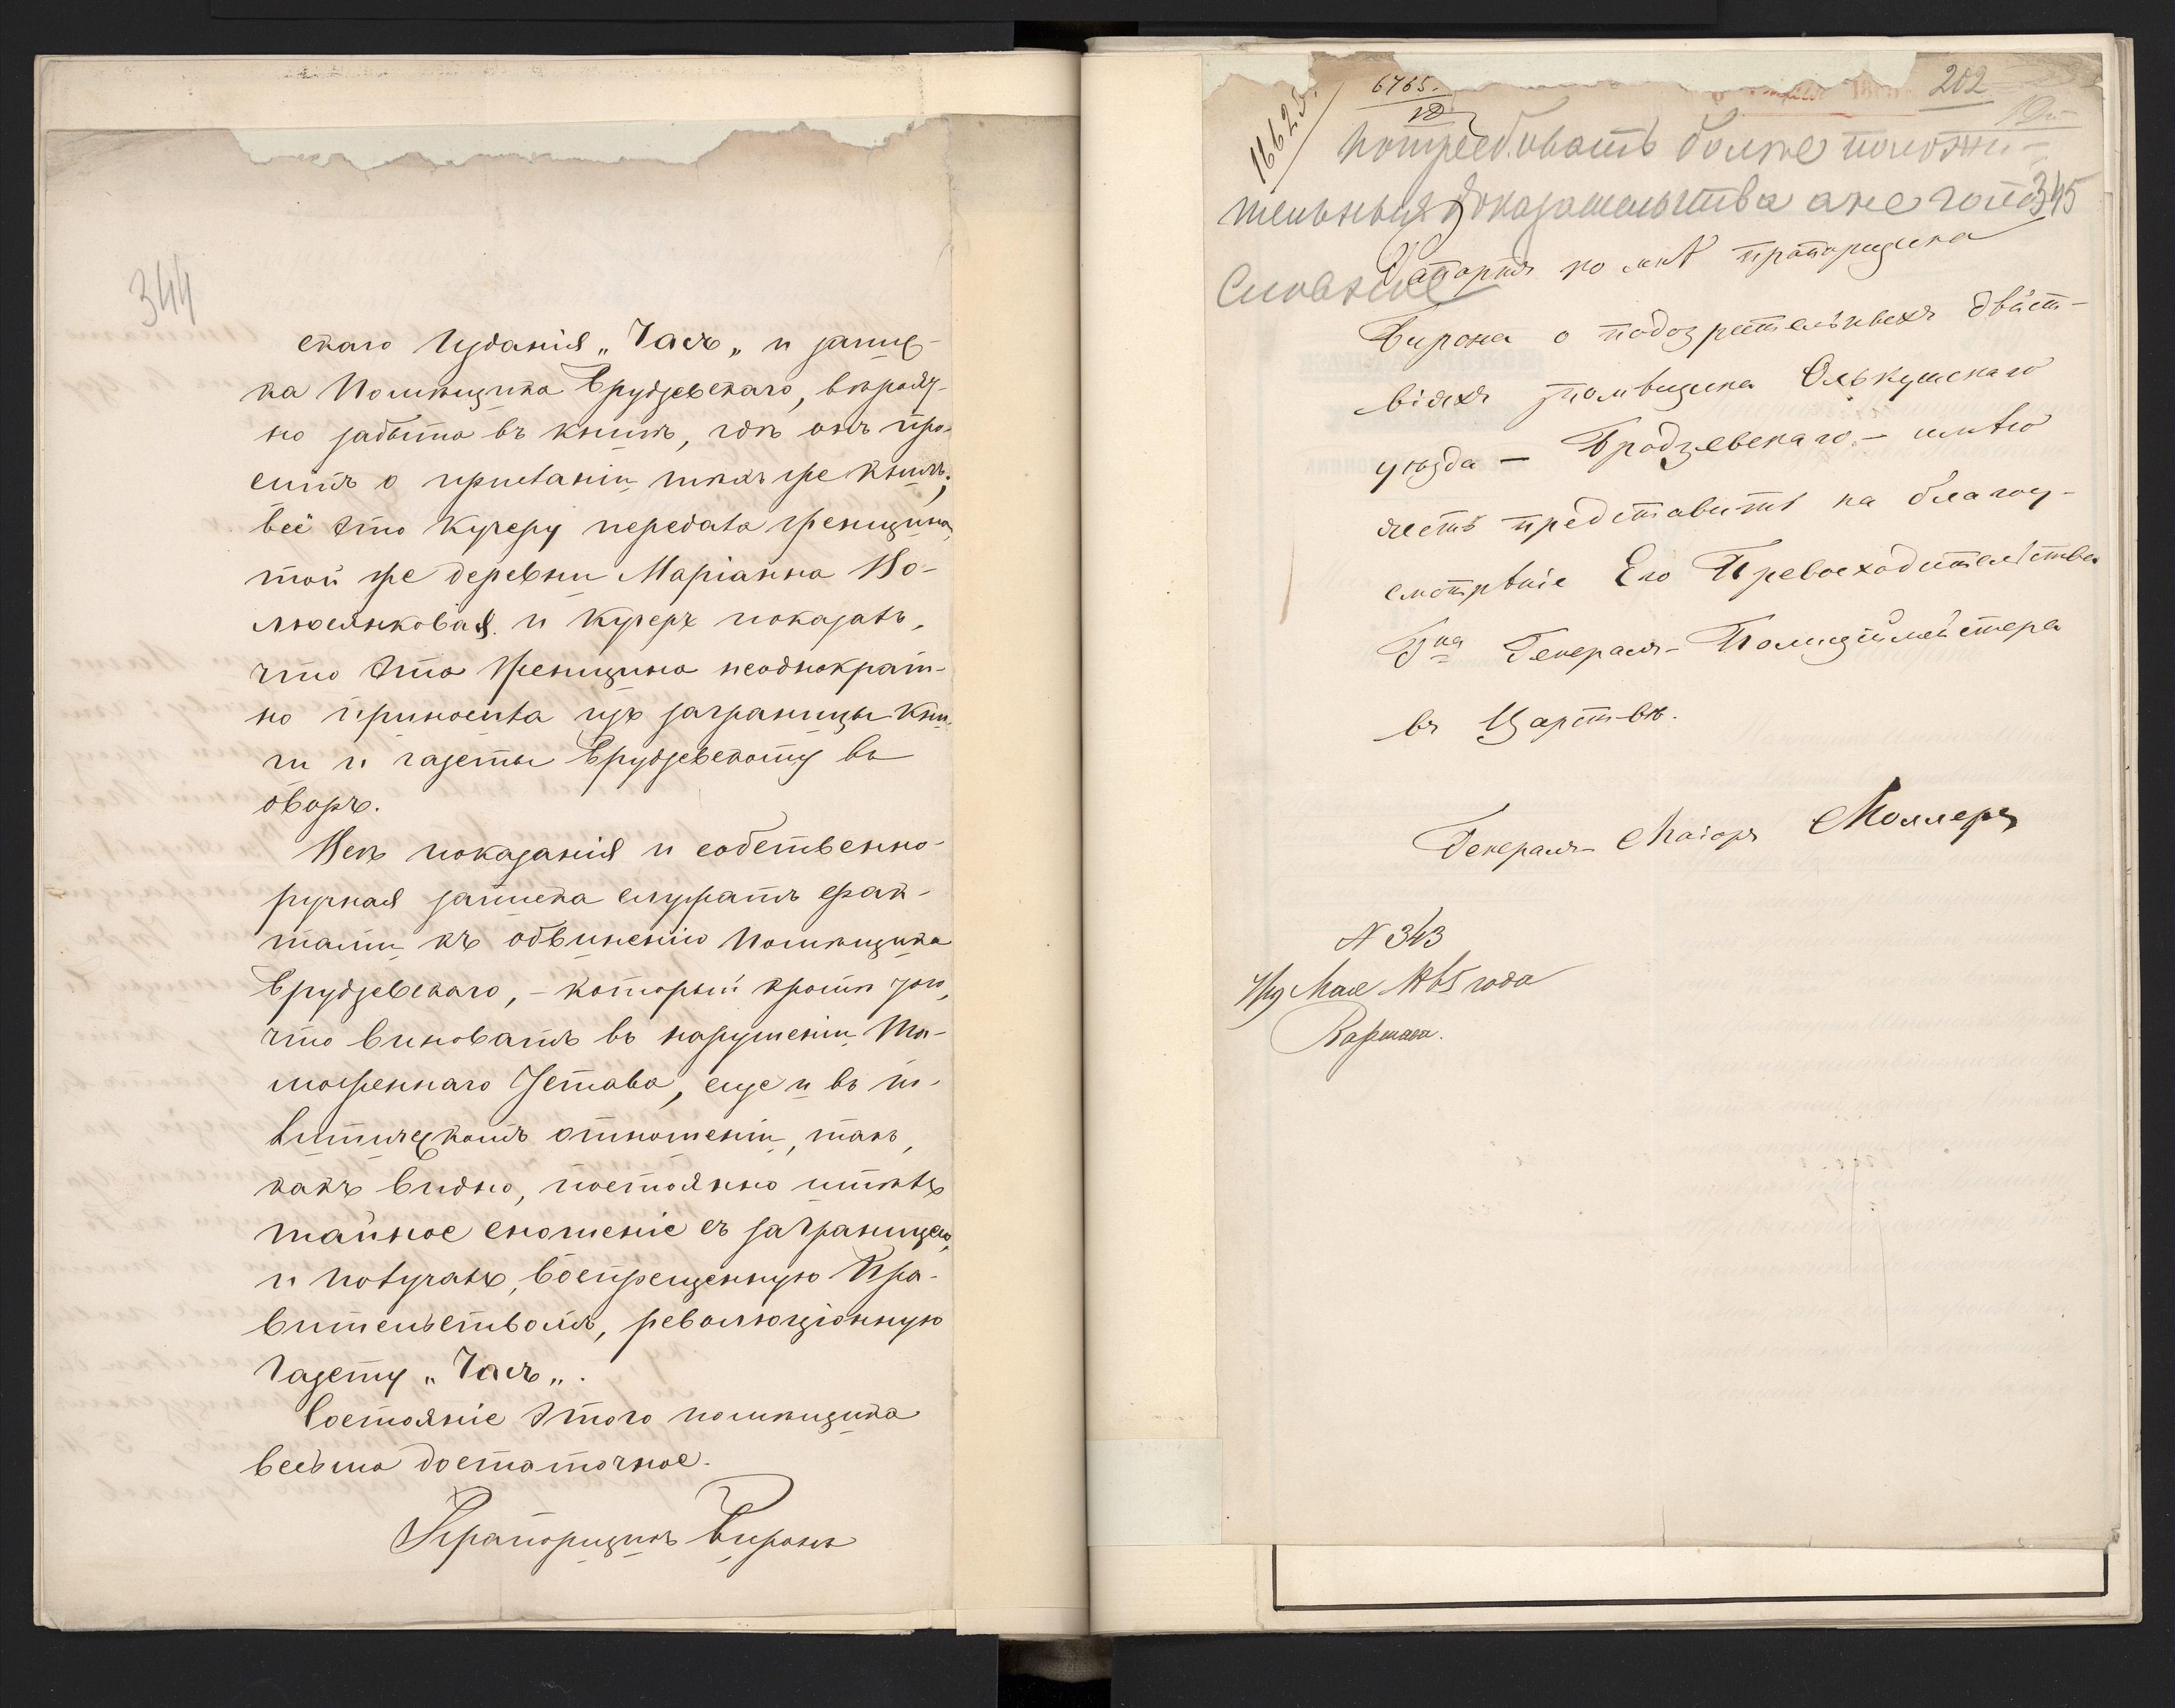 344
скаго Изданія „Часъ„ и запис-
ка Помѣщика Брудзевскаго, вѣроят-
но забыта въ книгѣ, гдѣ онъ про-
ситъ о присланіи такихъ же книгъ;
всё это Кучеру передала женщина
той же деревни Маріанна По-
и Кучеръ показалъ,
что эта женщина неоднократ-
но приносила изъ заграницы кни-
ги и газеты Брудзевскому въ
дворъ.
Всѣ показанія и собственно-
ручная записка служатъ фак-
тами къ обвиненію Помѣщика
Брудзевскаго, – который кромѣ того,
что виноватъ въ нарушеніи Та-
моженнаго Устава, еще и въ по-
литическомъ отношеніи, такъ,
какъ видно, постоянно имѣлъ
тайное сношеніе съ заграницею,
и получалъ, воспрещенную Пра-
вительствомъ, революціонную
Газету „Часъ„.
Состояніе этого помѣщика
весьма достаточное.
Прапорщикъ Биронъ
16625.
6765.
202
Потребовать болѣе положи-
тельныя доказательства а не голо
345
Словные
Рапортъ ко мнѣ прапорщика
Бирона о подозрительныхъ дѣйст-
віяхъ помѣщика Олькушскаго
уѣзда – Бродзевскаго – имѣю
честь представить на благоу-
смотрѣніе Его Превосходительства
Гна Генералъ-Полиціймейстера
въ Царствѣ.
Генералъ-Маіоръ Моллеръ
N 343
7/19 Мая 1865 года
Варшава.